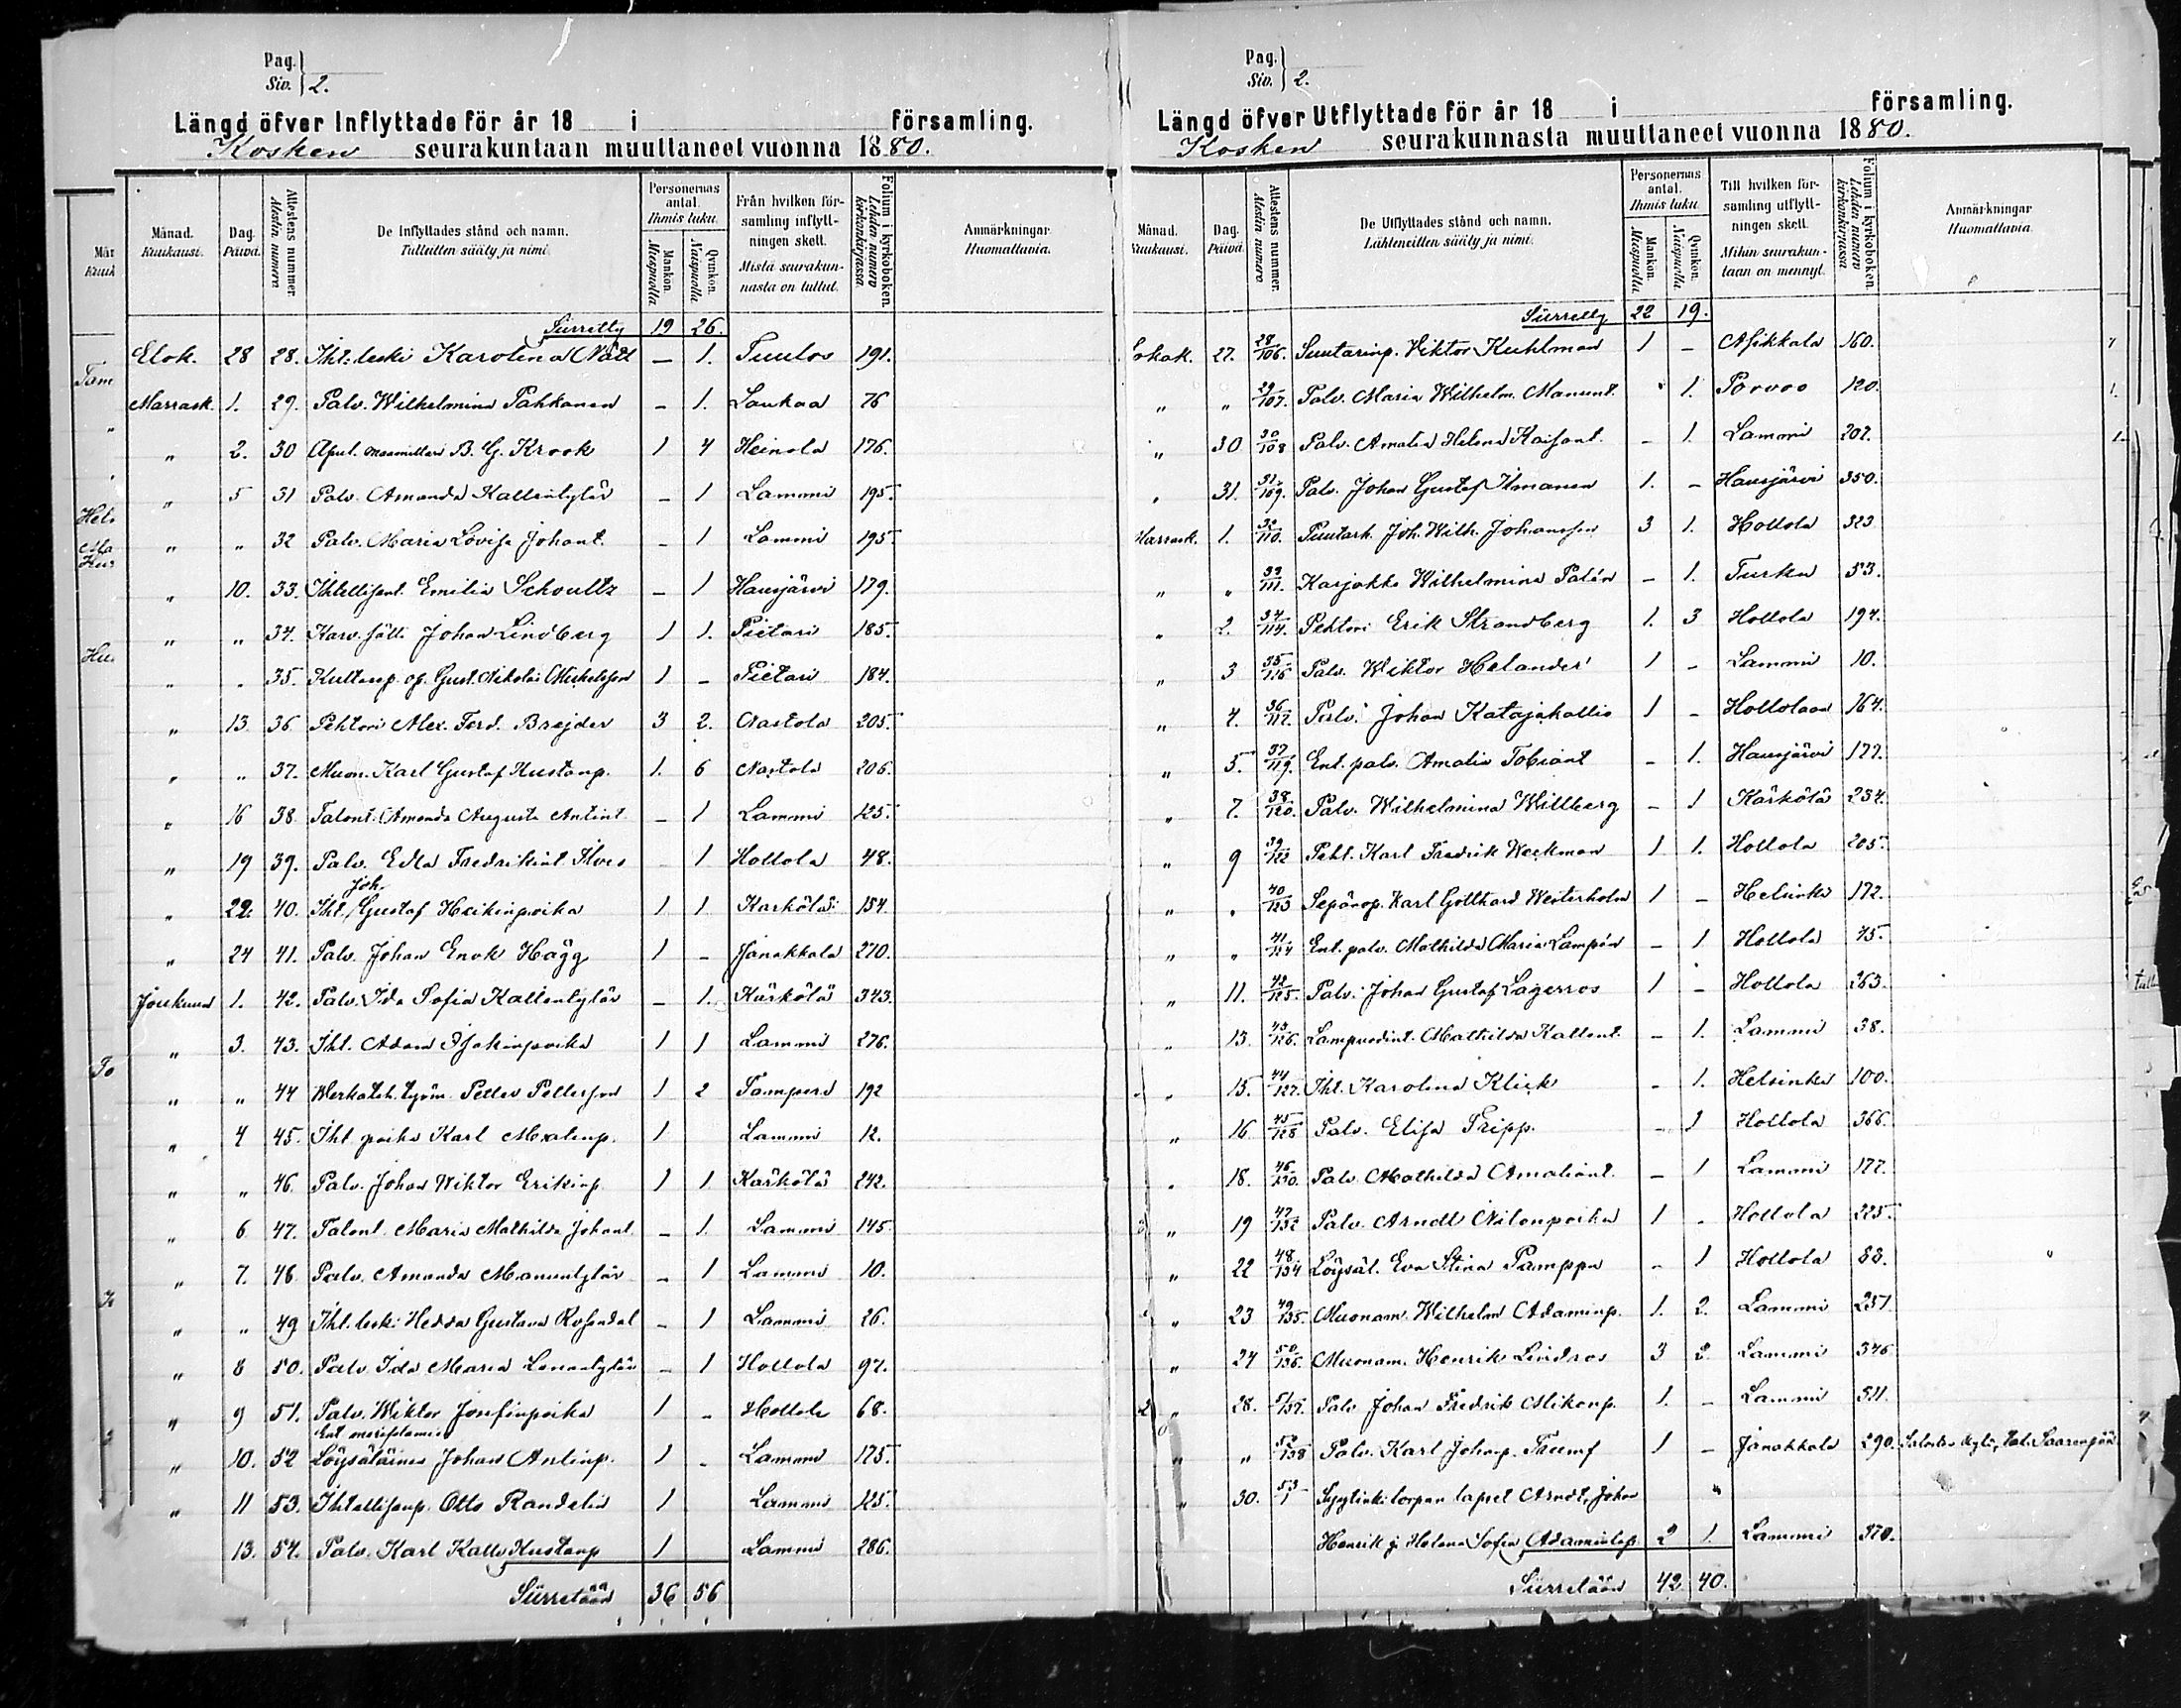 Pag.
Siv. 2.
Längd öfver Inflyttade för år 18 i församling.
Kosken seurakuntaan muuttaneet vuonna 1880.
Månad. Kuukausi.
Dag. Päivä.
Attestens nummer. Alestin numero
De Inflyttades stånd och namn.
Tulleitten sääty ja nimi.
Personernas antal. Ihmis luku.
Mankön. Miespuolia
Qvinkön. Naispuolia
Från hvilken församling inflyttningen skett.
Mistä seurakunnasta on tullut.
Folium i kyrkoboken. Lehden numero kirkonkirjassa.
Anmärkningar. Huomattavia.
Siirretty 19 26.
Elok. 28 28. Iht: leski Karolina Nätt — 1. Tuulos 191.
Marrask. 1. 29. Palv. Wilhelmina Pahkanen - 1. Laukaa 76
" 2. 30 Apul. maamittari B. G. Krook 1 4 Heinola 176.
" 5 31 Palv. Amanda Kallentytär - 1 Lammi 195.
" " 32 Palv. Maria Lovisa Johant. - 1 Lammi 195.
" 10. 33. Ihtellisent. Emilia Schoultz - 1 Hausjärvi 179.
" " 34. Karv. sälli Johan Lindberg 1 1. Pietari 185.
" " 35. Kultasep. op. Gust. Nikolai Mickelsson 1 - Pietari 184.
" 13 36 Pehtori Alex. Ferd. Brejder 3 2. Nastola 205.
" " 37. Muon. Karl Gustaf Kustaap. 1. 6 Nastola 206.
" 16 38. Talont. Amanda Augusta Antint. - 1 Lammi 125.
" 19 39. Palv. Edla Fredrikint. Ilves 1 Hollola 48.
" 22. 40. Iht. Joh. Gustaf Heikinpoika 1 1 Kärkölä 154.
" 24 41. Palv. Johan Enok Hägg 1 - Janakkala 270.
Jouluk. 1. 42. Palv. Ida Sofia Kallentytär - 1. Kärkölä 343.
" 3. 43. Iht. Adam Isakinpoika 1 1 Lammi 276.
" " 44 Werkateh. työm. Petter Pettersson 1 2 Tampere 192
" 4 45. Iht. poika Karl Matinp. 1 Lammi 12.
" " 46. Palv. Johan Wiktor Erikinp. 1 1 Kärkölä 242.
" 6 47. Talont. Maria Mathilda Johant. - 1. Lammi 145.
" 7. 48. Palv. Amanda Manuntytär - 1 Lammi 10.
" " 49 Iht. leski Hedda Gustava Rosendal - 1 Lammi 26.
" 8 50. Palv. Ida Maria Lenantytär - 1 Hollola 97.
" 9 51. Palv. Wiktor Josefinpoika 1 - Hollola 68.
" 10. 52 Löysäläinen Johan Antinp. 1 - Lammi 175.
" 11 53. Ihtellisenp. Otto Randelin 1 Lammi 125.
13. 54. Palv. Karl Kalle Kustaap 1 Lammi 286.
Siirretään 36 56
Pag.
Siv. 2.
Längd öfver Utflyttade för år 18 i församling.
Kosken seurakunnasta muuttaneet vuonna 1880.
Månad. Kuukausi.
Dag. Päivä.
Attestens nummer. Alestin numero
De Utflyttades stånd och namn.
Lähteneitten sääty ja nimi.
Personernas antal. Ihmis luku.
Mankön. Miespuolia.
Qvinkön. Naispuolia
Till hvilken församling utflyttningen skett.
Mihin seurakuntaan on mennyt.
Folium i kyrkoboken. Lehden numero kirkonkirjassa
Anmärkningar Huomattavia.
Siirretty 22 19.
Lokak. 27. 28/106. Suutarinp. Viktor Kuhlman 1 - Asikkala 160.
" " 29/107. Palv. Maria Wilhelm. Manunt. 1. Porvoo 120.
" 30 30/108 Palv. Amalia Helena Kaisant. - 1. Lammi 202.
" 31. 31/109. Palv. Johan Gustaf Ilmanen 1. - Hausjärvi 350.
Marrask. 1. 32/110. Puutarh. Joh. Wilh. Johansson 3 1. Hollola 323
" " 33/111. Karjakko Wilhelmina Palén - 1. Turku 53.
" 2. 34/114. Pehtori Erik Strandberg 1. 3 Hollola 194.
" 3 35/116 Palv. Wiktor Helander 1 - Lammi 10.
" 4. 36/117. Palv. Johan Katajakallio 1 - Hollolaan 164.
" 5. 37/119. Ent. palv. Amalia Tobiant - 1. Hausjärvi 177.
" 7. 38/120. Palv. Wilhelmina Willberg - 1 Kärkölä 234.
" 9 39/122 Peht. Karl Fredrik Weckman 1 1. Hollola 205.
" " 40/123 Sepänop. Karl Gotthard Westerholm 1 - Helsinki 172.
" " 41/124 Ent. palv. Mathilda Maria Lampén - 1 Hollola 75.
" 11. 42/125. Palv. Johan Gustaf Lagerros 1 - Hollola 263.
" 13. 43/126. Lampuodint. Mathilda Kallent. - 1. Lammi 38.
" 15. 44/127. Iht. Karolina Klick - 1. Helsinki 100.
" 16 45/128 Palv. Elisa Tripp. - 1 Hollola 366.
" 18. 46/130. Palv. Mathilda Amaliant. - 1 Lammi 177.
" 19 47/132 Palv. Arndt Nilonpoika 1 - Hollola 225.
" 22 48/134 Löysäl. Eva Stina Pamppu - 1 Hollola 83.
" 23 49/135. Muonam. Wilhelm Adaminp. 1. 2. Lammi 257.
" 24 50/136. Muonam. Henrik Lindros 3 2 Lammi 346
" 28. 51/137. Palv. Johan Fredrik Mikonp. 1. - Lammi 311.
" " 52/138 Palv. Karl Johanp. Trumf 1 - Janakkala 290.
" 30. 53/1 Syytinki torpan lapset Arndt, Johan
Henrik ja Helena Sofia Adaminlap. 2 1. Lammi 370.
Siirretään 42 40.